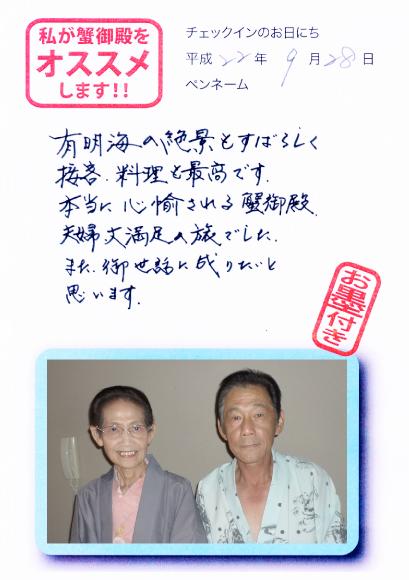 私が蟹御殿を
オススメ
します!!
チェックインのお日にち
平成 22年 9月 28日
ペンネーム
有明海の絶景もすばらしく
接客、料理も最高です。
本当に心愉される蟹御殿。
夫婦大満足の旅でした。
また、御世話に成りたいと
思います。
お墨付き